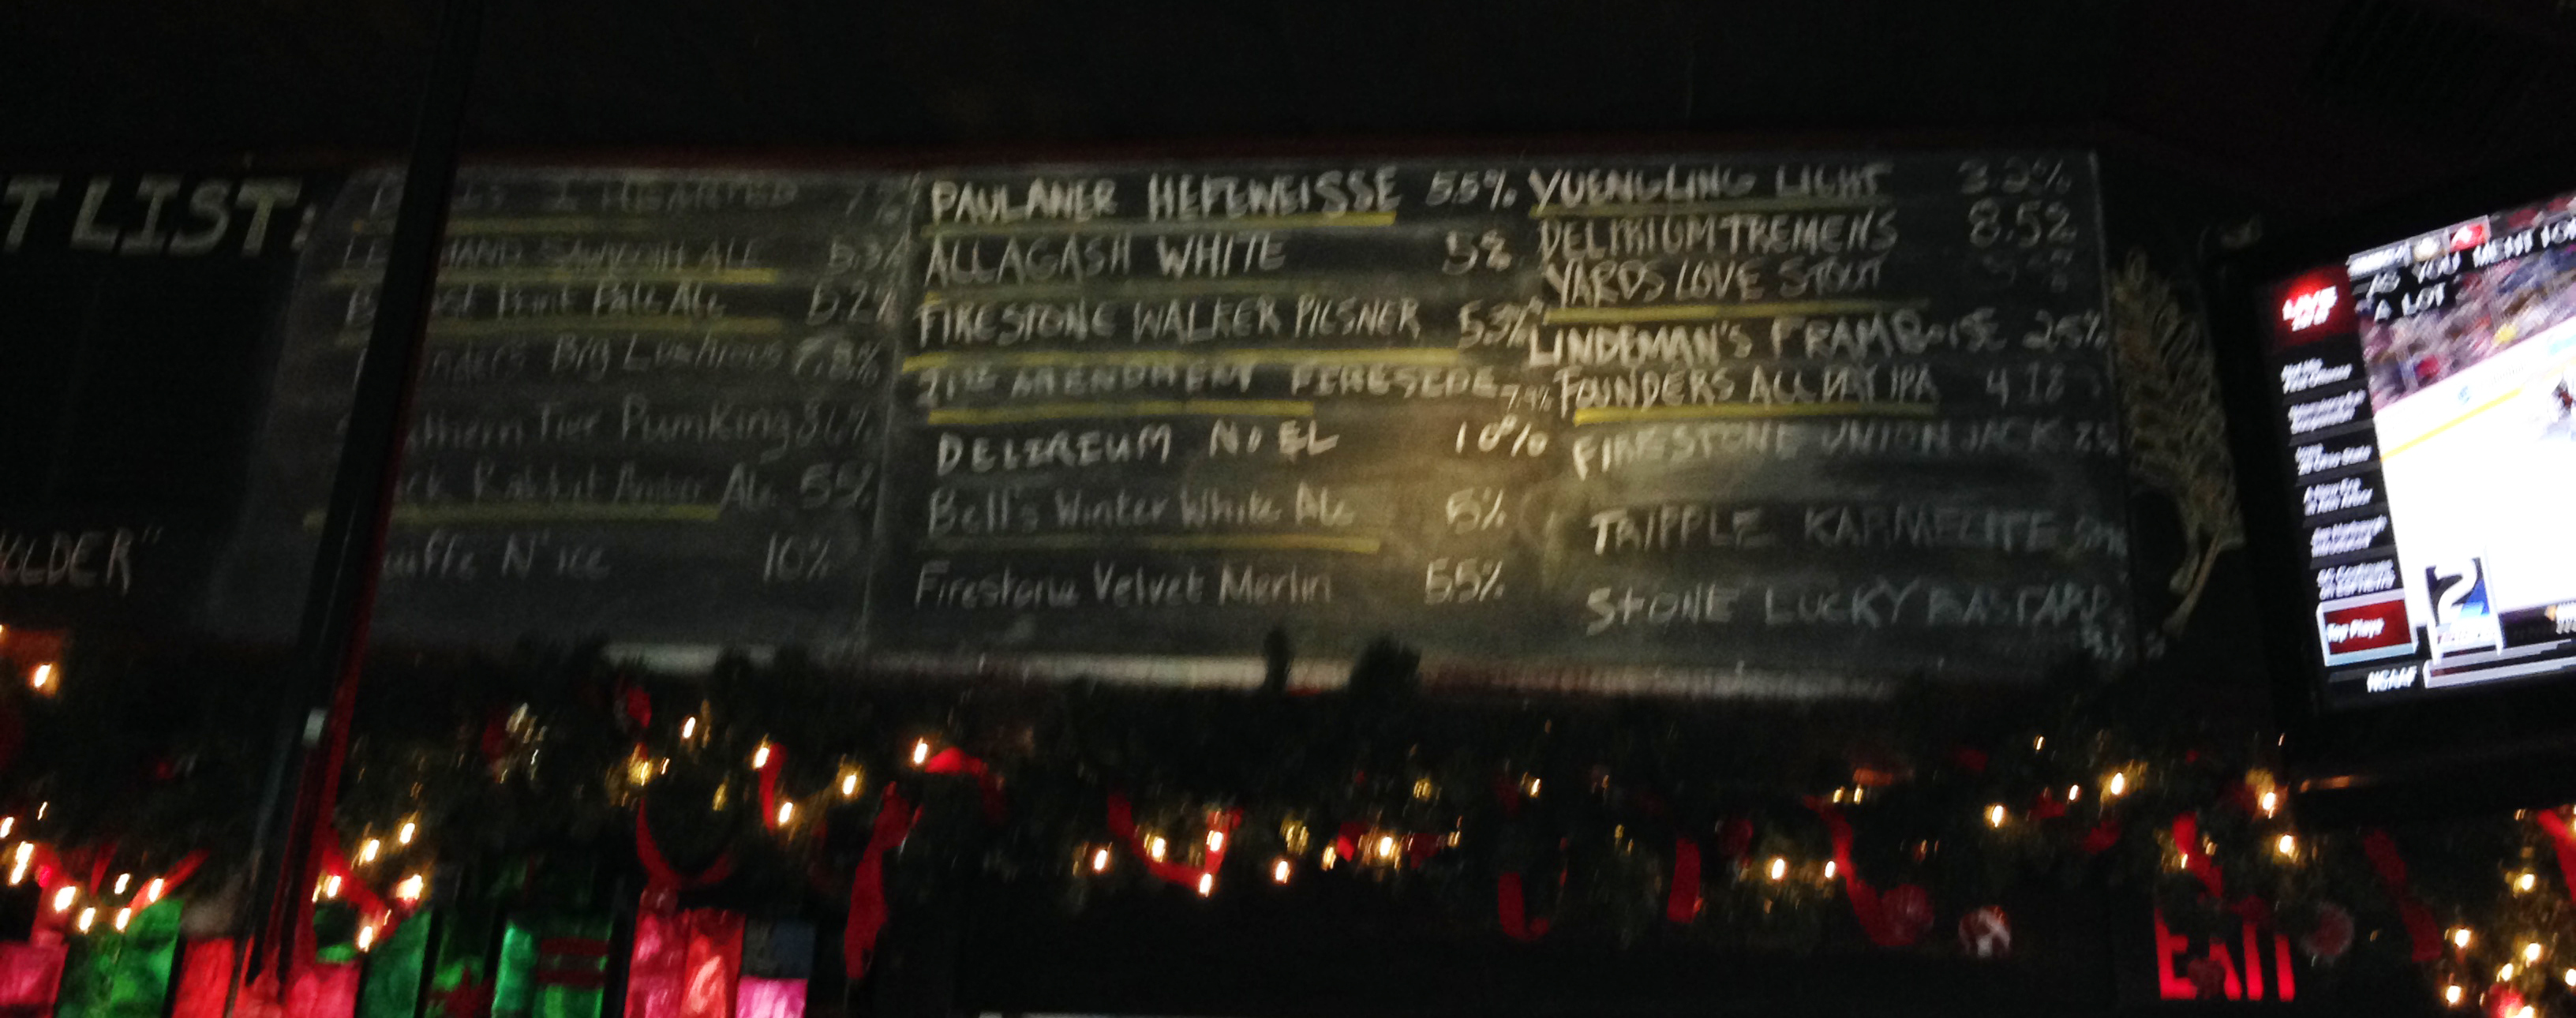 T LIST:
OLDER"
I HEARTED 7%
HAND SAWTOOTH ALE 5.3%
Point Pale Ale 5.2%
nders Big Lushious 7.8%
thern Tier Pumking 8.6%
ck Rabbit Amber Ale 5.5%
uiffe N'ice 10%
PAULANER HEFEWEISSE 5.5%
ALLAGASH WHITE 5%
FIRESTONE WALKER PILSNER 5.3%
21ST AMENDMENT FIRESIDE 7.9%
DELIREUM NOEL 10%
Bell's Winter White Ale 5%
Firestone Velvet Merlin 5.5%
YUENGLING LIGHT 3.2%
DELIRIUM TREMENS 8.5%
YARDS LOVE STOUT
LINDEMAN'S FRAMBOISE 2.5%
FOUNDERS ALL DAY IPA
FIRESTONE UNION JACK
TRIPPLE KARMELITE
STONE LUCKY BASTARD
LIVE
AS YOU MENTION
A LOT
Top Plays
NCAAF
EXIT